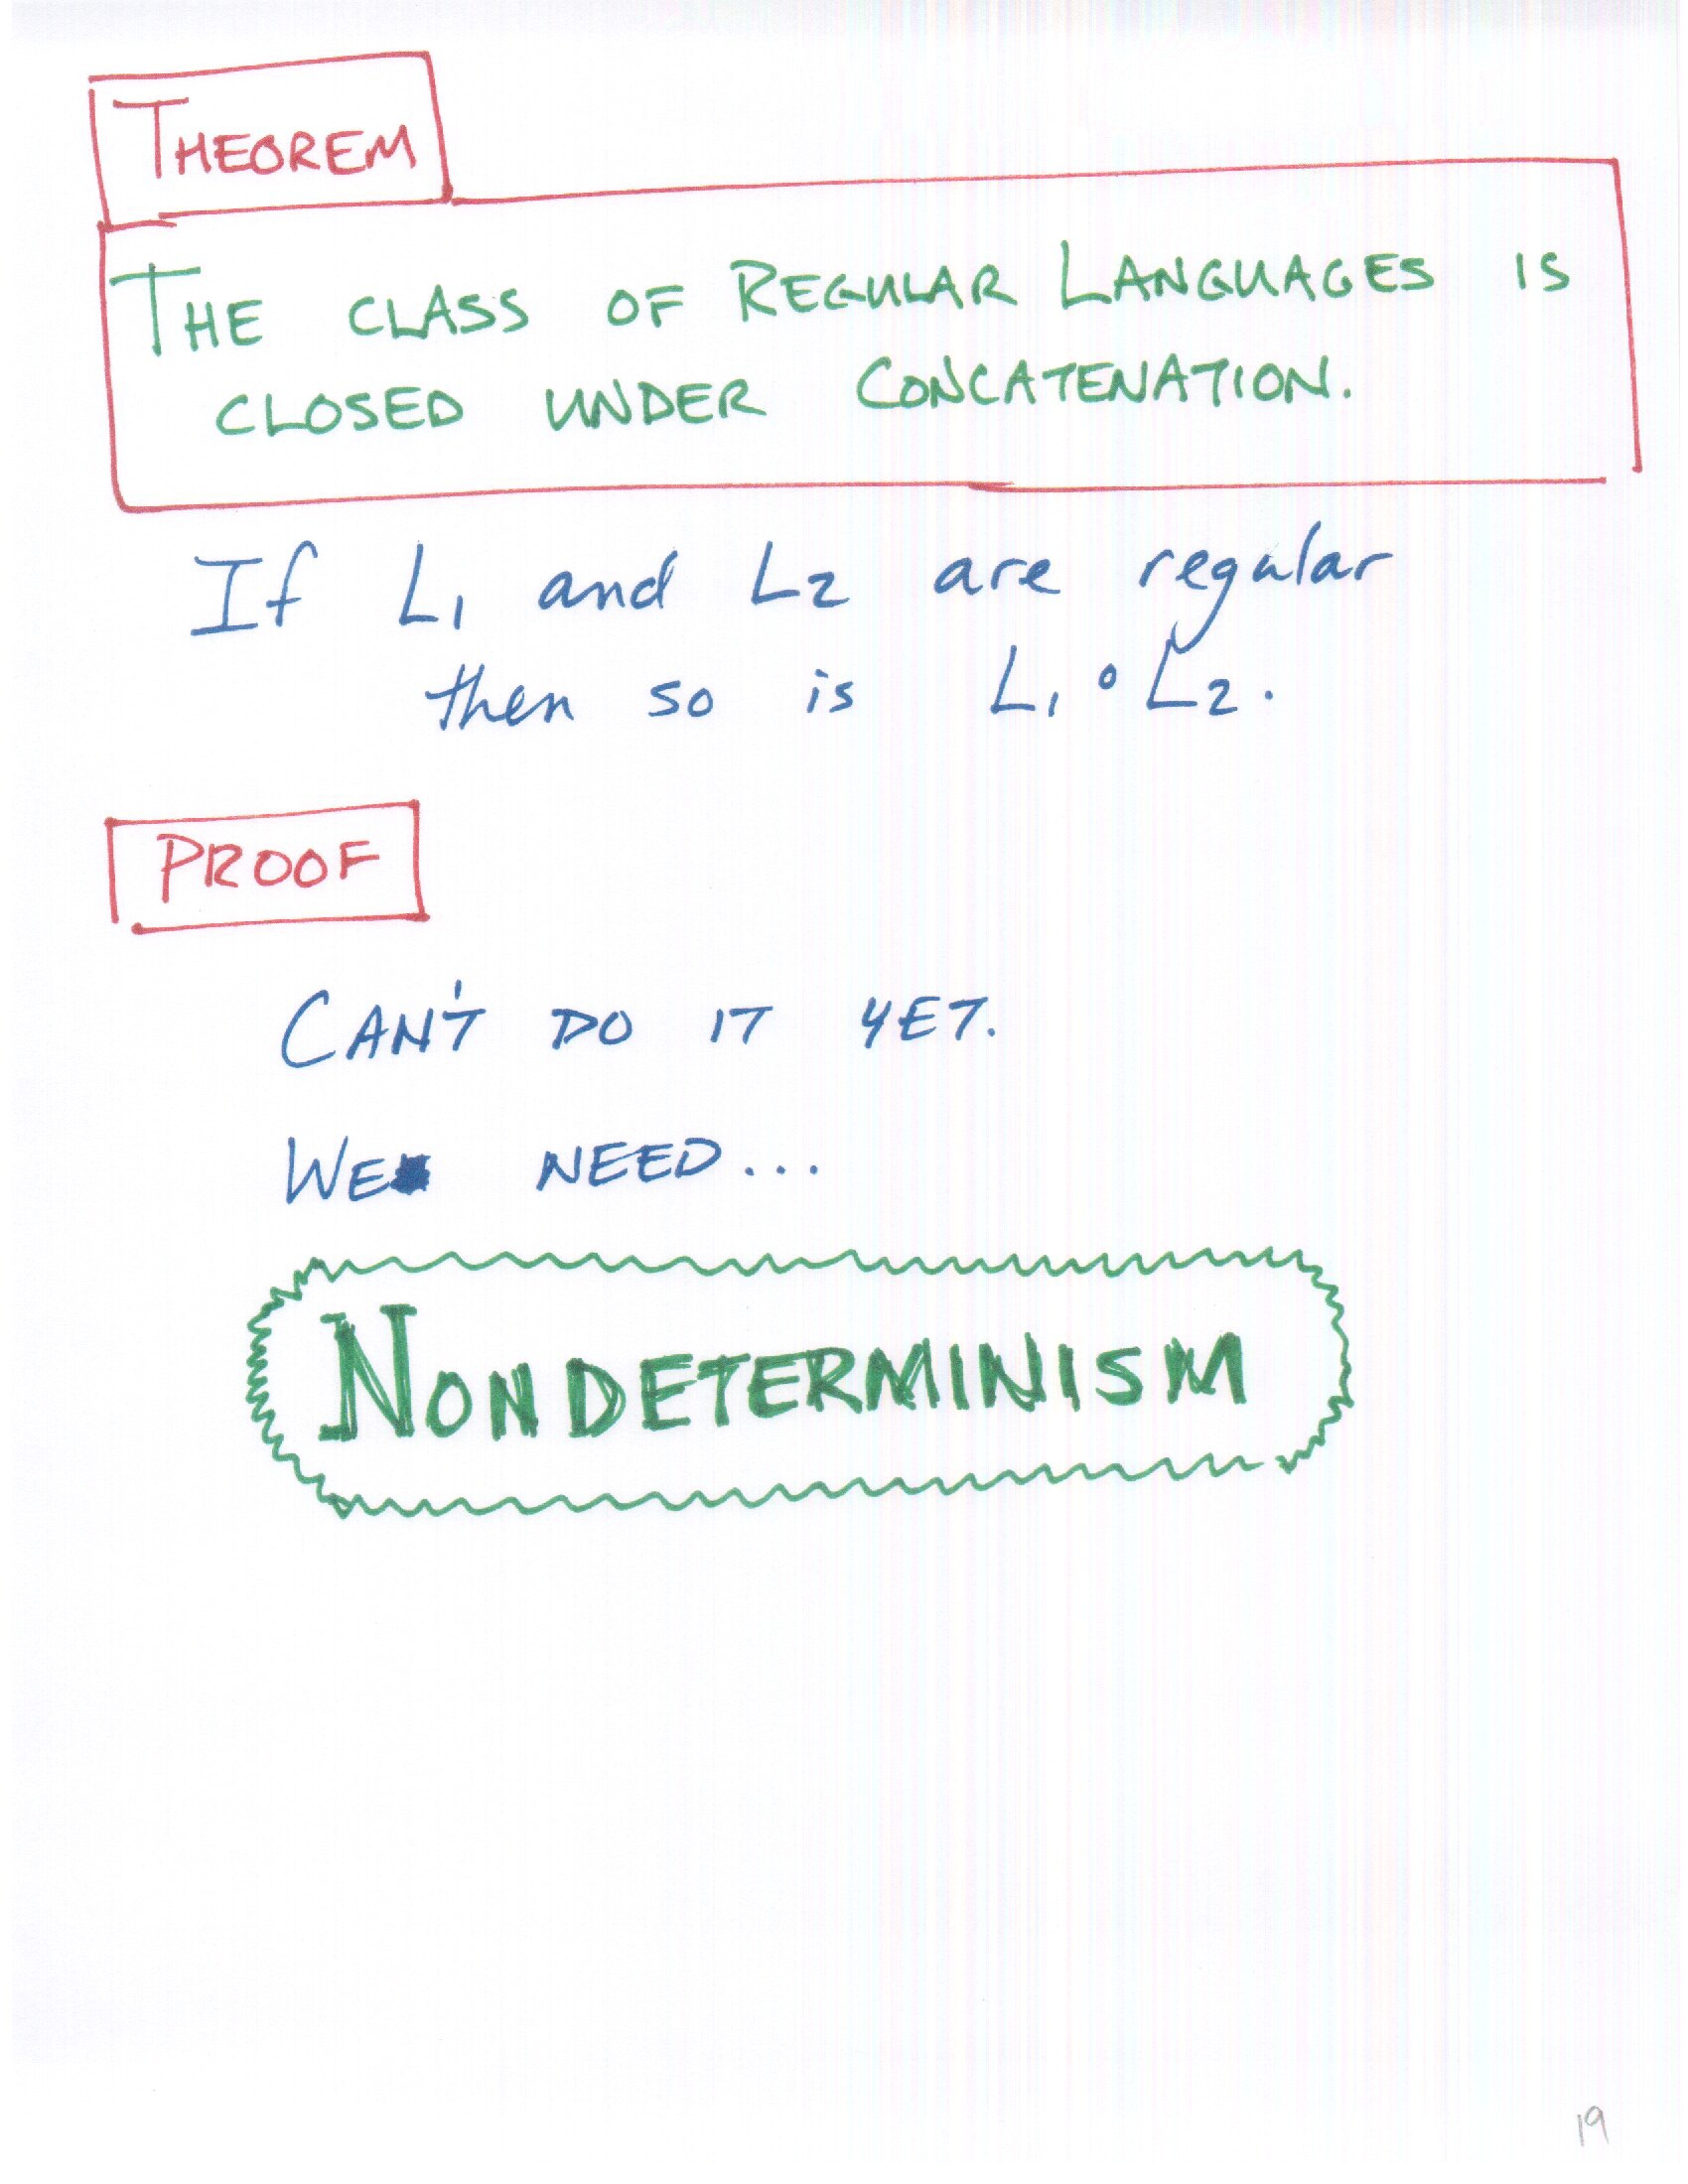 THEOREM
THE CLASS OF REGULAR LANGUAGES IS
CLOSED UNDER CONCATENATION.
If L₁ and L₂ are regular
then so is L₁ ∘ L₂.
PROOF
CAN'T DO IT YET.
WE NEED...
NONDETERMINISM
19